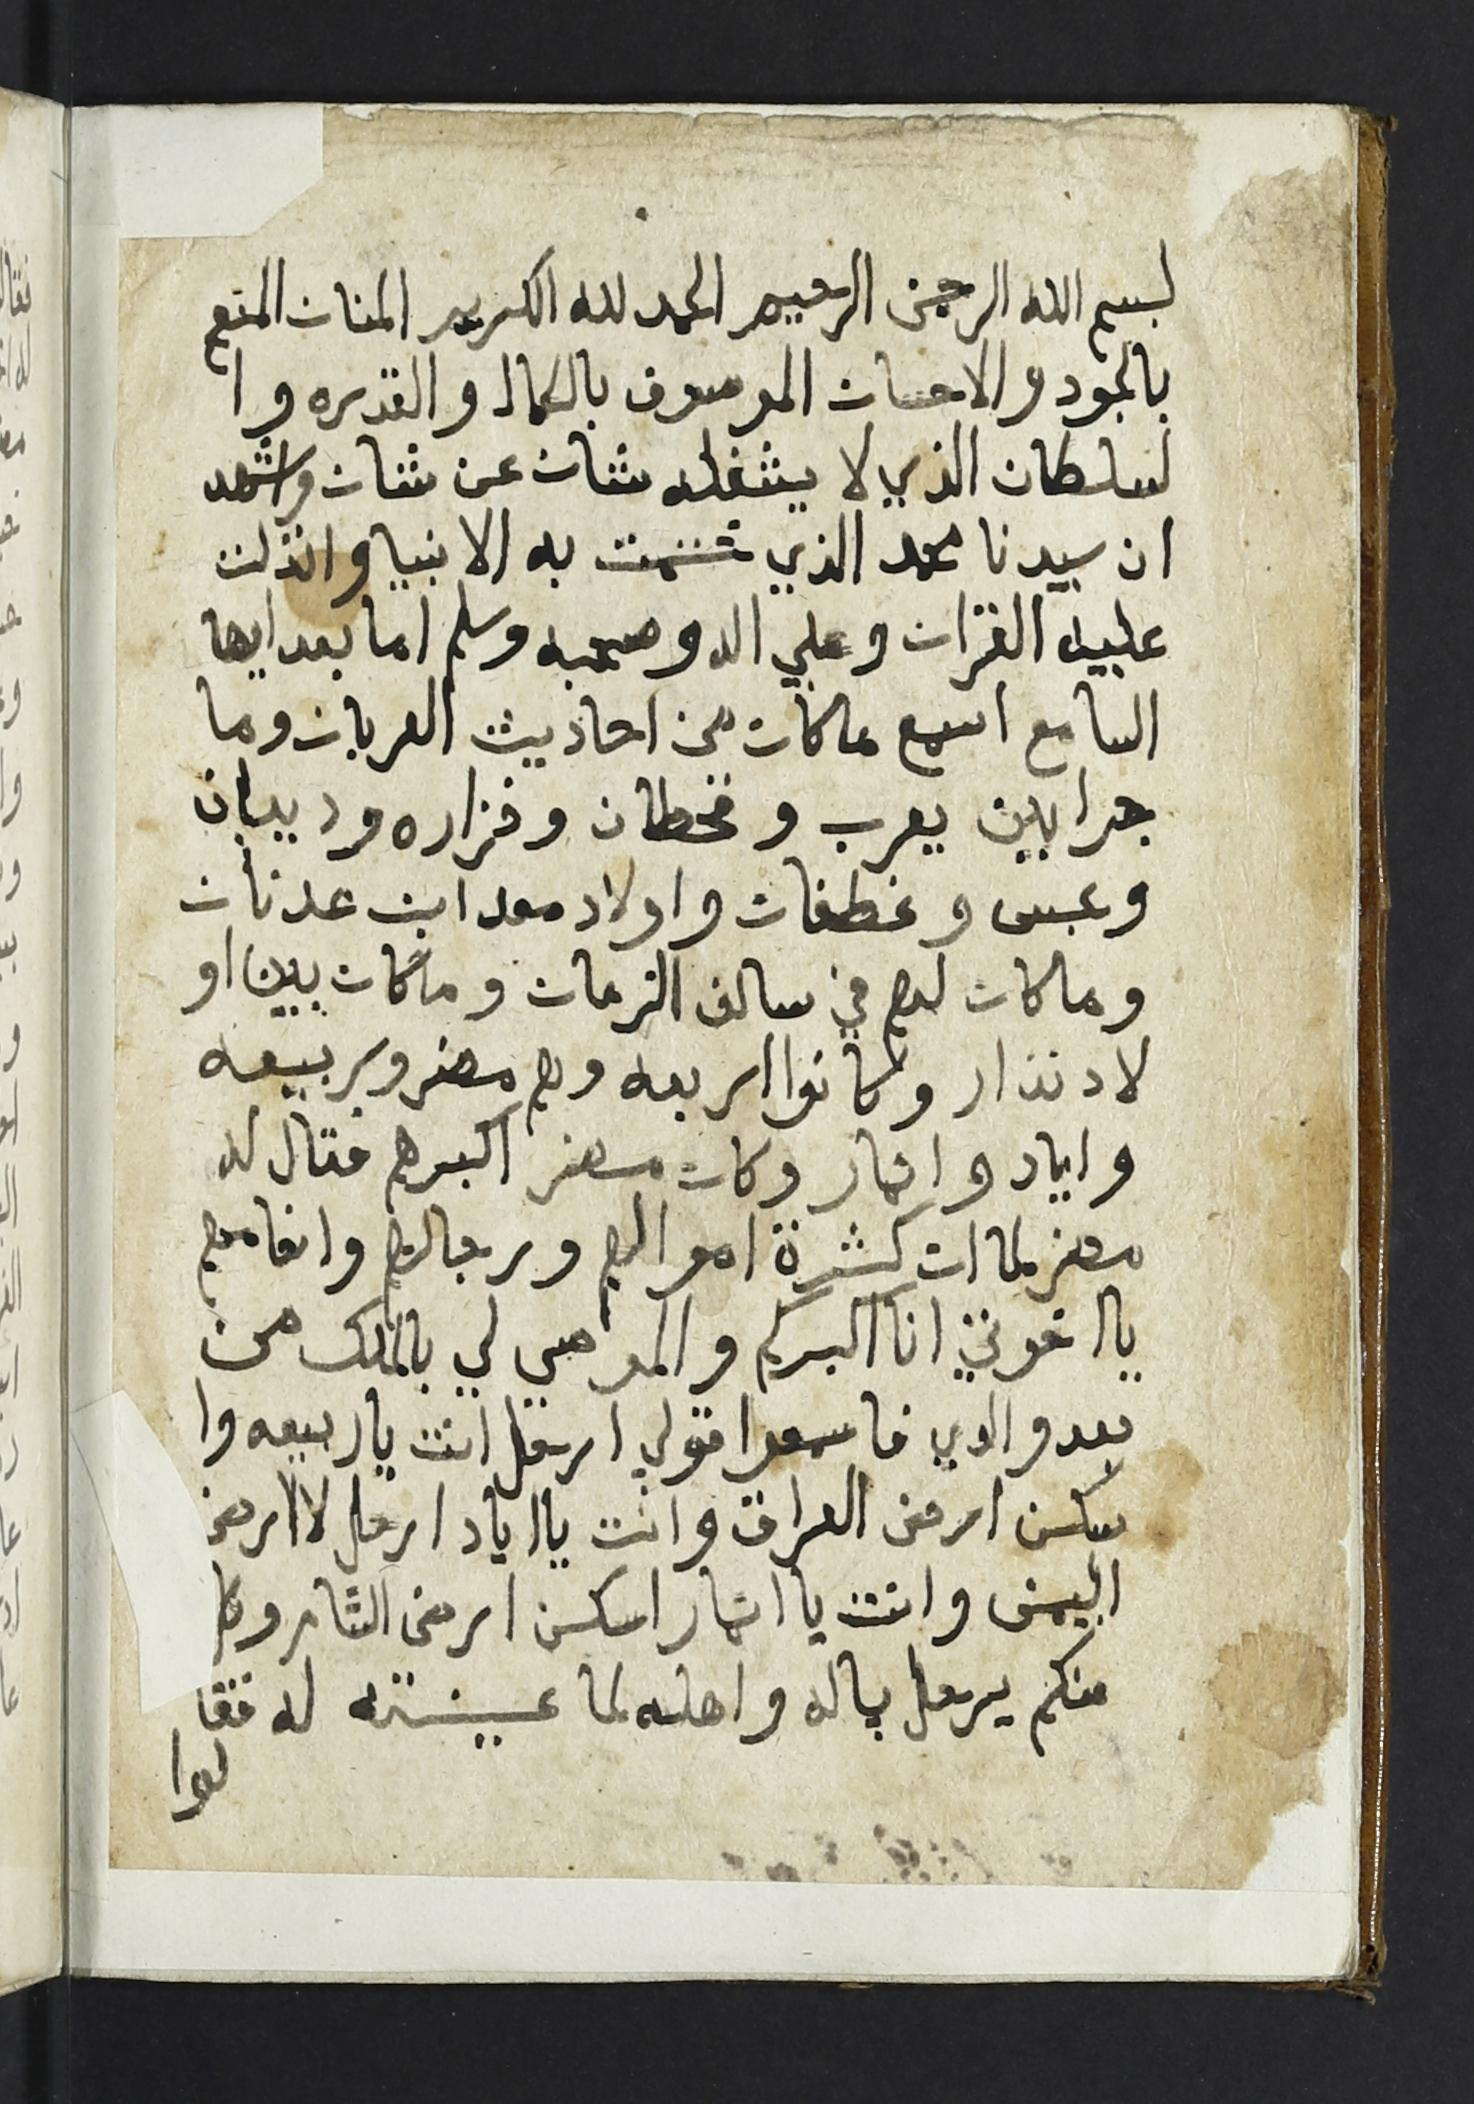 بسم الله الرحمن الرحيم الحمد لله الكريم المنان المنعم
بالجود والاحسان الموصوف بالكمال والقدره وا
لسلطان الذي لا يشغله شان عن شان واشهد
ان سيدنا محمد الذي ختمت به الانبيا وانزلت
عليه القران وعلي اله وصحبه وسلم اما بعد ايها
السامع اسمع ماكان من احاديث العربان وما
جرا بين يعرب وقحطان وفزاره ودبيان
وعبس وغطفان واولاد معد ابن عدنان
وماكان لهم في سالف الزمان وماكان بين او
لاد نذار وكانوا اربعه وهم مضر وربيعه
واياد وانمار وكان مضر اكبرهم فقال له
مضر لما ان كثرة اموالهم ورجالهم وانعامهم
يا اخوتي انا اكبركم والموصي لي بالملك من
بعد والدي فاسمعوا قولي ارحل انت يا ربيعه وا
سكن ارض العراق وانت يا اياد ارحل لا ارض
اليمن وانت يا انمار اسكن ارض الشام وكل
منكم يرحل بماله واهله لما عينته له فقا
لوا